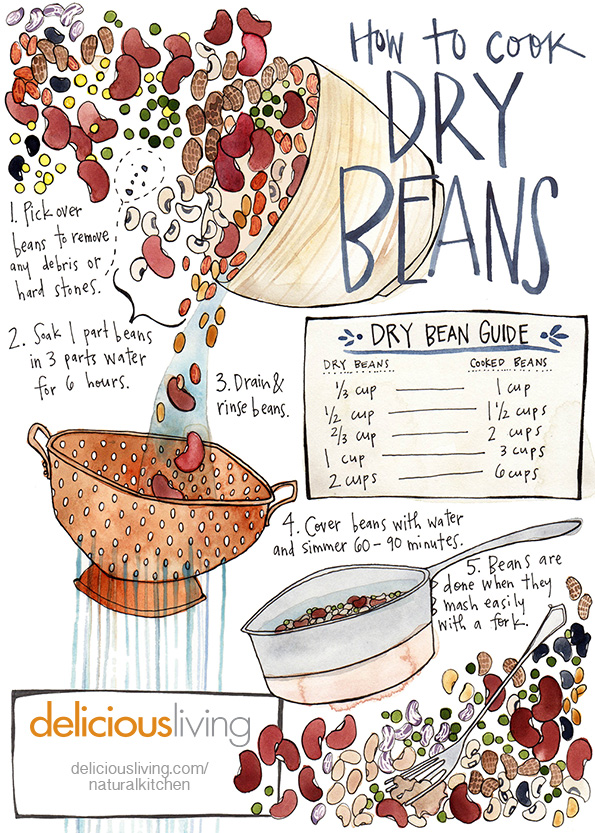 How to cook
DRY
BEANS
1. Pick over
beans to remove
any debris or
hard stones.
2. Soak 1 part beans
in 3 parts water
for 6 hours.
3. Drain &
rinse beans.
DRY BEAN GUIDE
DRY BEANS COOKED BEANS
1/3 cup 1 cup
1/2 cup 1 1/2 cups
2/3 cup 2 cups
1 cup 3 cups
2 cups 6 cups
4. Cover beans with water
and simmer 60-90 minutes.
5. Beans are
done when they
mash easily
with a fork.
deliciousliving
deliciousliving.com/
naturalkitchen